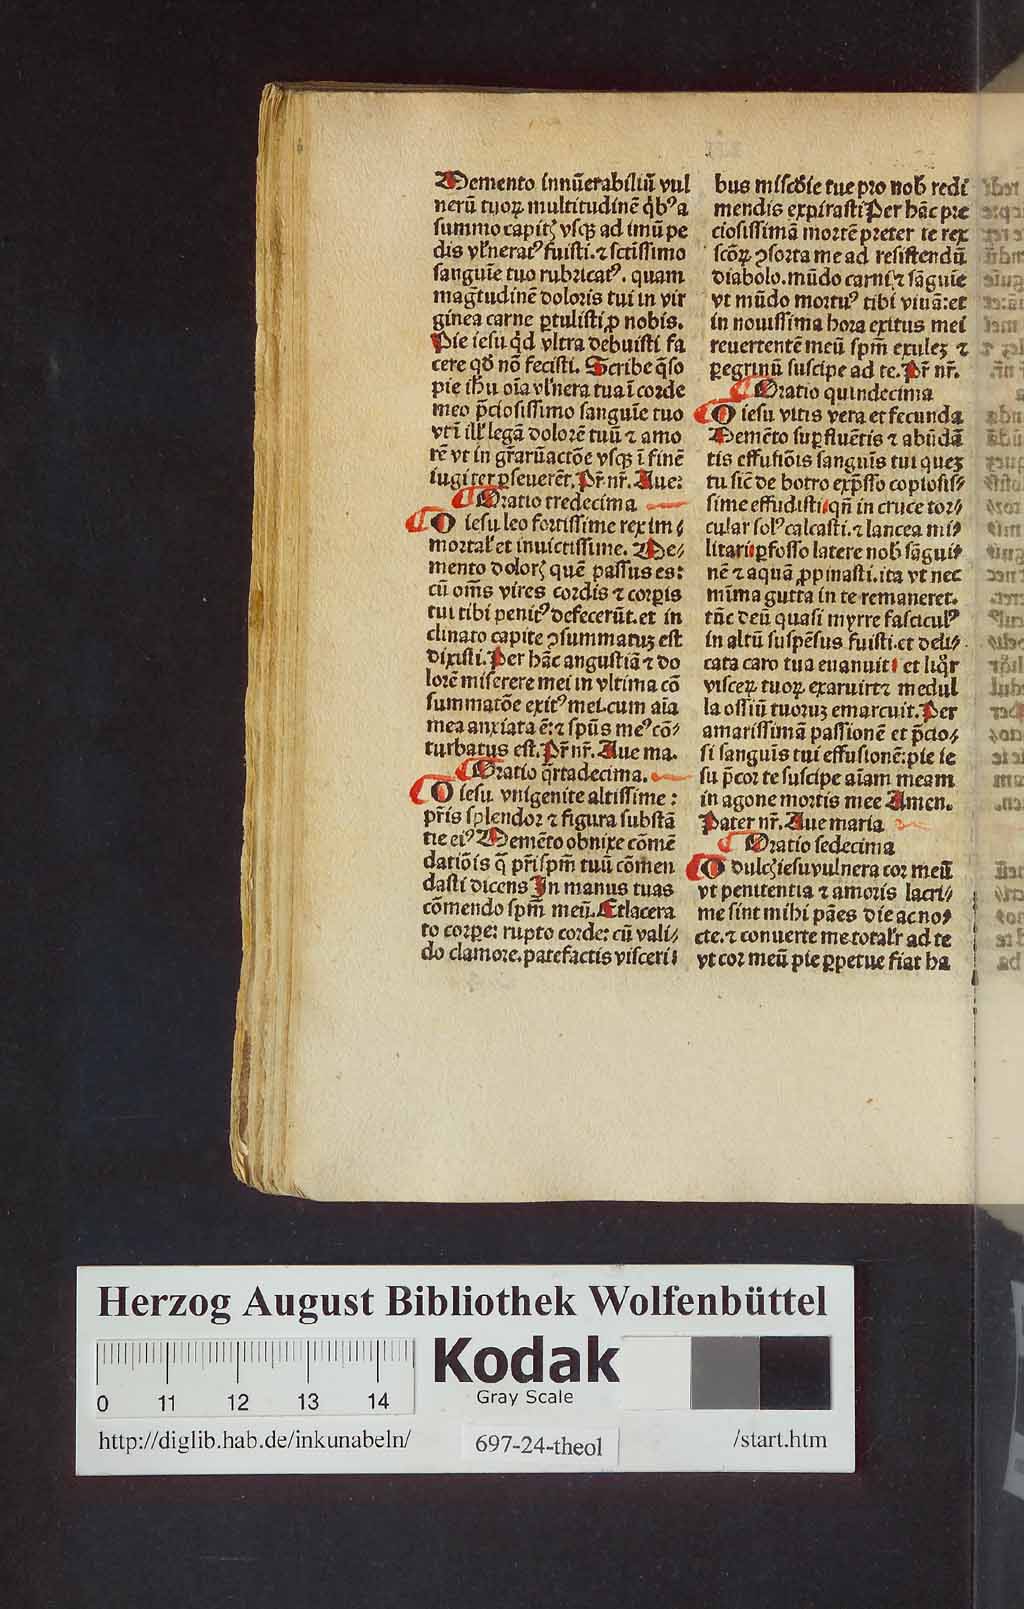 Memento innūerabiliū vul
nerū tuoꝝ multitudinē q̇bꝰ a
summo capitꝭ vsqꝫ ad imū pe
dis vl̕neratꝰ fuisti. ⁊ sctissimo
sanguīe tuo rubricatꝰ. quam
mag̅tudinē doloris tui in vir
ginea carne ꝑtulisti ꝓ nobis.
Pie iesu qd̕ vltra debuisti fa
cere qḋ nō fecisti. Scribe q̄so
pie ih̅u oīa vl̕nera tua ī corde
meo p̄ciosissimo sanguīe tuo
vt ī ill̕ legā dolorē tuū ⁊ amo
rē vt in gr̄aꝝ actōe vsqꝫ ī finē
iugiter ꝑseuerē. Pr̄ nr̄. Aue:
Oratio tredecima
O iesu leo fortissime rex im⸗
mortal̕ et inuictissime. Me⸗
mento dolorꝭ quē passus es:
cū om̄s vires cordis ⁊ corꝑis
tui tibi penitꝰ defecerūt. et in
clinato capite ꝯsummatuꝫ est
dixisti. Per hāc angustiā ⁊ do
lorē miserere mei in vltima cō
summatōe exitꝰ mei. cum aīa
mea anxiata ē: ⁊ spūs meꝰ cō⸗
turbatus est. Pr̄ nr̄. Aue ma.
Oratio q̄rtadecima.
O iesu vnigenite altissime :
pr̄is splendor ⁊ figura substā
tie eiꝰ Memēto obnixe cōmē
datiōis q̄ pr̄i spm̄ tuū cōmen
dasti dicens In manus tuas
cōmendo spm̄ meū. Et lacera
to corꝑe: rupto corde: cū vali⸗
do clamore. patefactis visceri⸗
bus misc̄die tue pro nob̕ redi
mendis expirasti Per hāc pre
ciosissimā mortē preter te rex
sc̄oꝝ ꝯforta me ad resistendū
diabolo. mūdo carni ⁊ sāguīe
vt mūdo mortuꝰ tibi viuā: et
in nouissima hora exitus mei
reuertentē meū spm̄ exuleꝫ ⁊
ꝑegrinū suscipe ad te. Pr̄ nr̄.
Oratio quindecima
O iesu vitis vera et fecunda
Memēto suꝑfluētis ⁊ abūdā
tis effusiōis sanguīs tui queꝫ
tu sic̄ de botro exp̄sso copiosis⸗
sime effudisti qn̄ in cruce tor⸗
cular solꝰ calcasti. ⁊ lancea mi⸗
litari ꝑfosso latere nob̕ sāgui⸗
nē ⁊ aquā ꝓpinasti. ita vt nec
mīma gutta in te remaneret.
tūc deū quasi myrre fasciculꝰ
in altū suspēsus fuisti. et deli⸗
cata caro tua euanuit et liq̊r
visceꝝ tuoꝝ exaruir⁊ medul
la ossiū tuoruꝫ emarcuit. Per
amarissimā passionē et p̄cio⸗
si sanguīs tui effusionē: pie ie
su p̄cor te suscipe aīam meam
in agone mortis mee Amen.
Pater nr̄. Aue maria
Oratio sedecima
O dulcꝭ iesu vulnera cor meū
vt penitentia ⁊ amoris lacri⸗
me sint mihi pāes die ac no⸗
cte. ⁊ conuerte me total̕r ad te
vt cor meū pie ꝑpetue fiat ha
Herzog August Bibliothek Wolfenbüttel
Kodak
Gray Scale
0 11 12 13 14
http://diglib.hab.de/inkunabeln/ 697-24-theol /start.htm